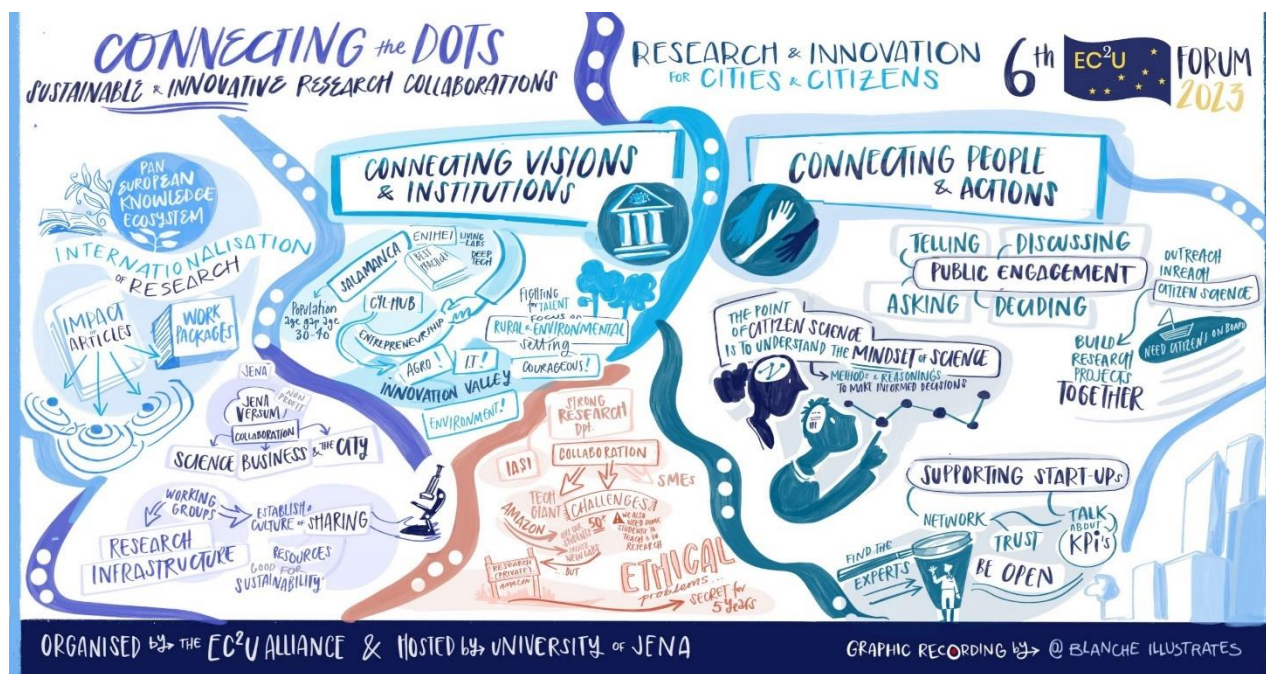 CONNECTING the DOTS
SUSTAINABLE & INNOVATIVE RESEARCH COLLABORATIONS
RESEARCH & INNOVATION
FOR CITIES & CITIZENS
6th EC²U FORUM
2023
PAN
EUROPEAN
KNOWLEDGE
ECOSYSTEM
INTERNATIONALISATION
OF RESEARCH
IMPACT
ARTICLES
WORK
PACKAGES
JENA
JENA
VERSUM
NON
PROFIT
COLLABORATION
SCIENCE BUSINESS & THE CITY
WORKING
GROUPS
ESTABLISH a
CULTURE OF SHARING
RESEARCH
INFRASTRUCTURE
RESOURCES
GOOD FOR
SUSTAINABILITY
CONNECTING VISIONS
& INSTITUTIONS
SALAMANCA
ENIHEI
LIVING
LABS
DEEP
TECH
BEST
PRACTICE
Population
age gap age
30-40
CYL-HUB
ENTREPRENEURSHIP
FIGHTING
for TALENT
FOCUS ON
RURAL & ENVIRONMENTAL
setting
COURAGEOUS!
AGRO!
I.T!
INNOVATION VALLEY
ENVIRONMENT!
STRONG
RESEARCH
Dpt.
IASI
COLLABORATION
SMEs
TECH
GIANT
AMAZON
CHALLENGES
STUDENTS
50%
NEW LABS
WE ALSO
NEED SOME
STUDENTS TO
TEACH & DO
RESEARCH
BUT
RESEARCH
(PRIVATE)
AMAZON
ETHICAL
problems...
SECRET for
5 YEARS
CONNECTING PEOPLE
& ACTIONS
TELLING
DISCUSSING
PUBLIC ENGAGEMENT
ASKING
DECIDING
OUTREACH
INREACH
CITIZEN SCIENCE
NEED CITIZENS ON BOARD
BUILD
RESEARCH
PROJECTS
TOGETHER
THE POINT
OF CITIZEN SCIENCE
IS TO UNDERSTAND THE MINDSET OF SCIENCE
METHODS & REASONINGS
TO MAKE INFORMED DECISIONS
SUPPORTING START-UPs
NETWORK
TRUST
TALK
ABOUT
KPi's
FIND THE
EXPERTS
BE OPEN
ORGANISED by THE EC²U ALLIANCE & HOSTED by UNIVERSITY OF JENA
GRAPHIC RECORDING by @ BLANCHE ILLUSTRATES